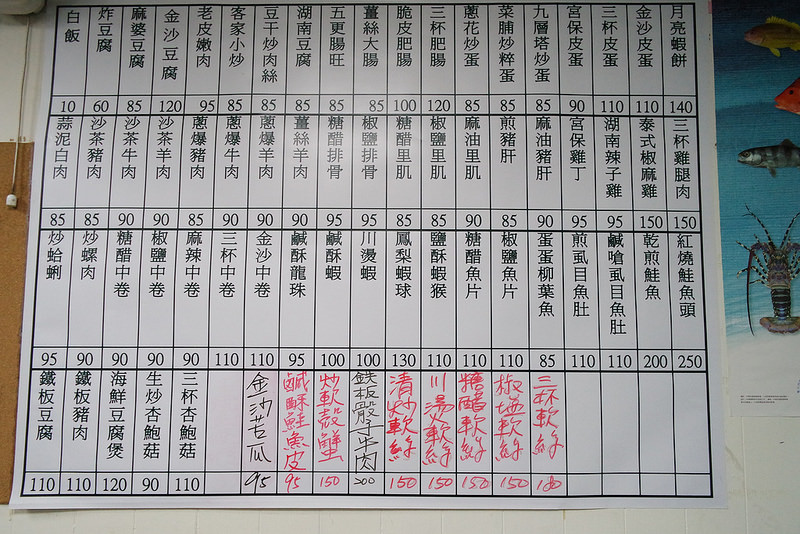 月亮蝦餅 140
金沙皮蛋 110
三杯皮蛋 110
宮保皮蛋 90
九層塔炒蛋 85
菜脯炒粹蛋 85
蔥花炒蛋 85
三杯肥腸 120
脆皮肥腸 100
薑絲大腸 85
五更腸旺 85
湖南豆腐 85
豆干炒肉絲 85
客家小炒 85
老皮嫩肉 95
金沙豆腐 120
麻婆豆腐 85
炸豆腐 60
白飯 10
三杯雞腿肉 150
泰式椒麻雞 150
湖南辣子雞 95
宮保雞丁 95
麻油豬肝 90
煎豬肝 85
麻油里肌 90
椒鹽里肌 85
糖醋里肌 85
椒鹽排骨 95
糖醋排骨 95
薑絲羊肉 90
蔥爆羊肉 90
蔥爆牛肉 90
蔥爆豬肉 85
沙茶羊肉 90
沙茶牛肉 90
沙茶豬肉 85
蒜泥白肉 85
紅燒鮭魚頭 250
乾煎鮭魚 200
鹹嗆虱目魚肚 110
煎虱目魚肚 110
蛋蛋柳葉魚 85
椒鹽魚片 110
糖醋魚片 110
鹽酥蝦猴 110
鳳梨蝦球 130
川燙蝦 100
鹹酥蝦 100
鹹酥龍珠 95
金沙中卷 110
三杯中卷 110
麻辣中卷 90
椒鹽中卷 90
糖醋中卷 90
炒螺肉 90
炒蛤蜊 95
三杯軟絲 180
椒塩軟絲 150
糖醋軟絲 150
川燙軟絲 150
清炒軟絲 150
鉄板骰子牛肉 200
炒軟殼蟹 150
鹹酥鮭魚皮 95
金沙苦瓜 95
三杯杏鮑菇 110
生炒杏鮑菇 90
海鮮豆腐煲 120
鐵板豬肉 110
鐵板豆腐 110